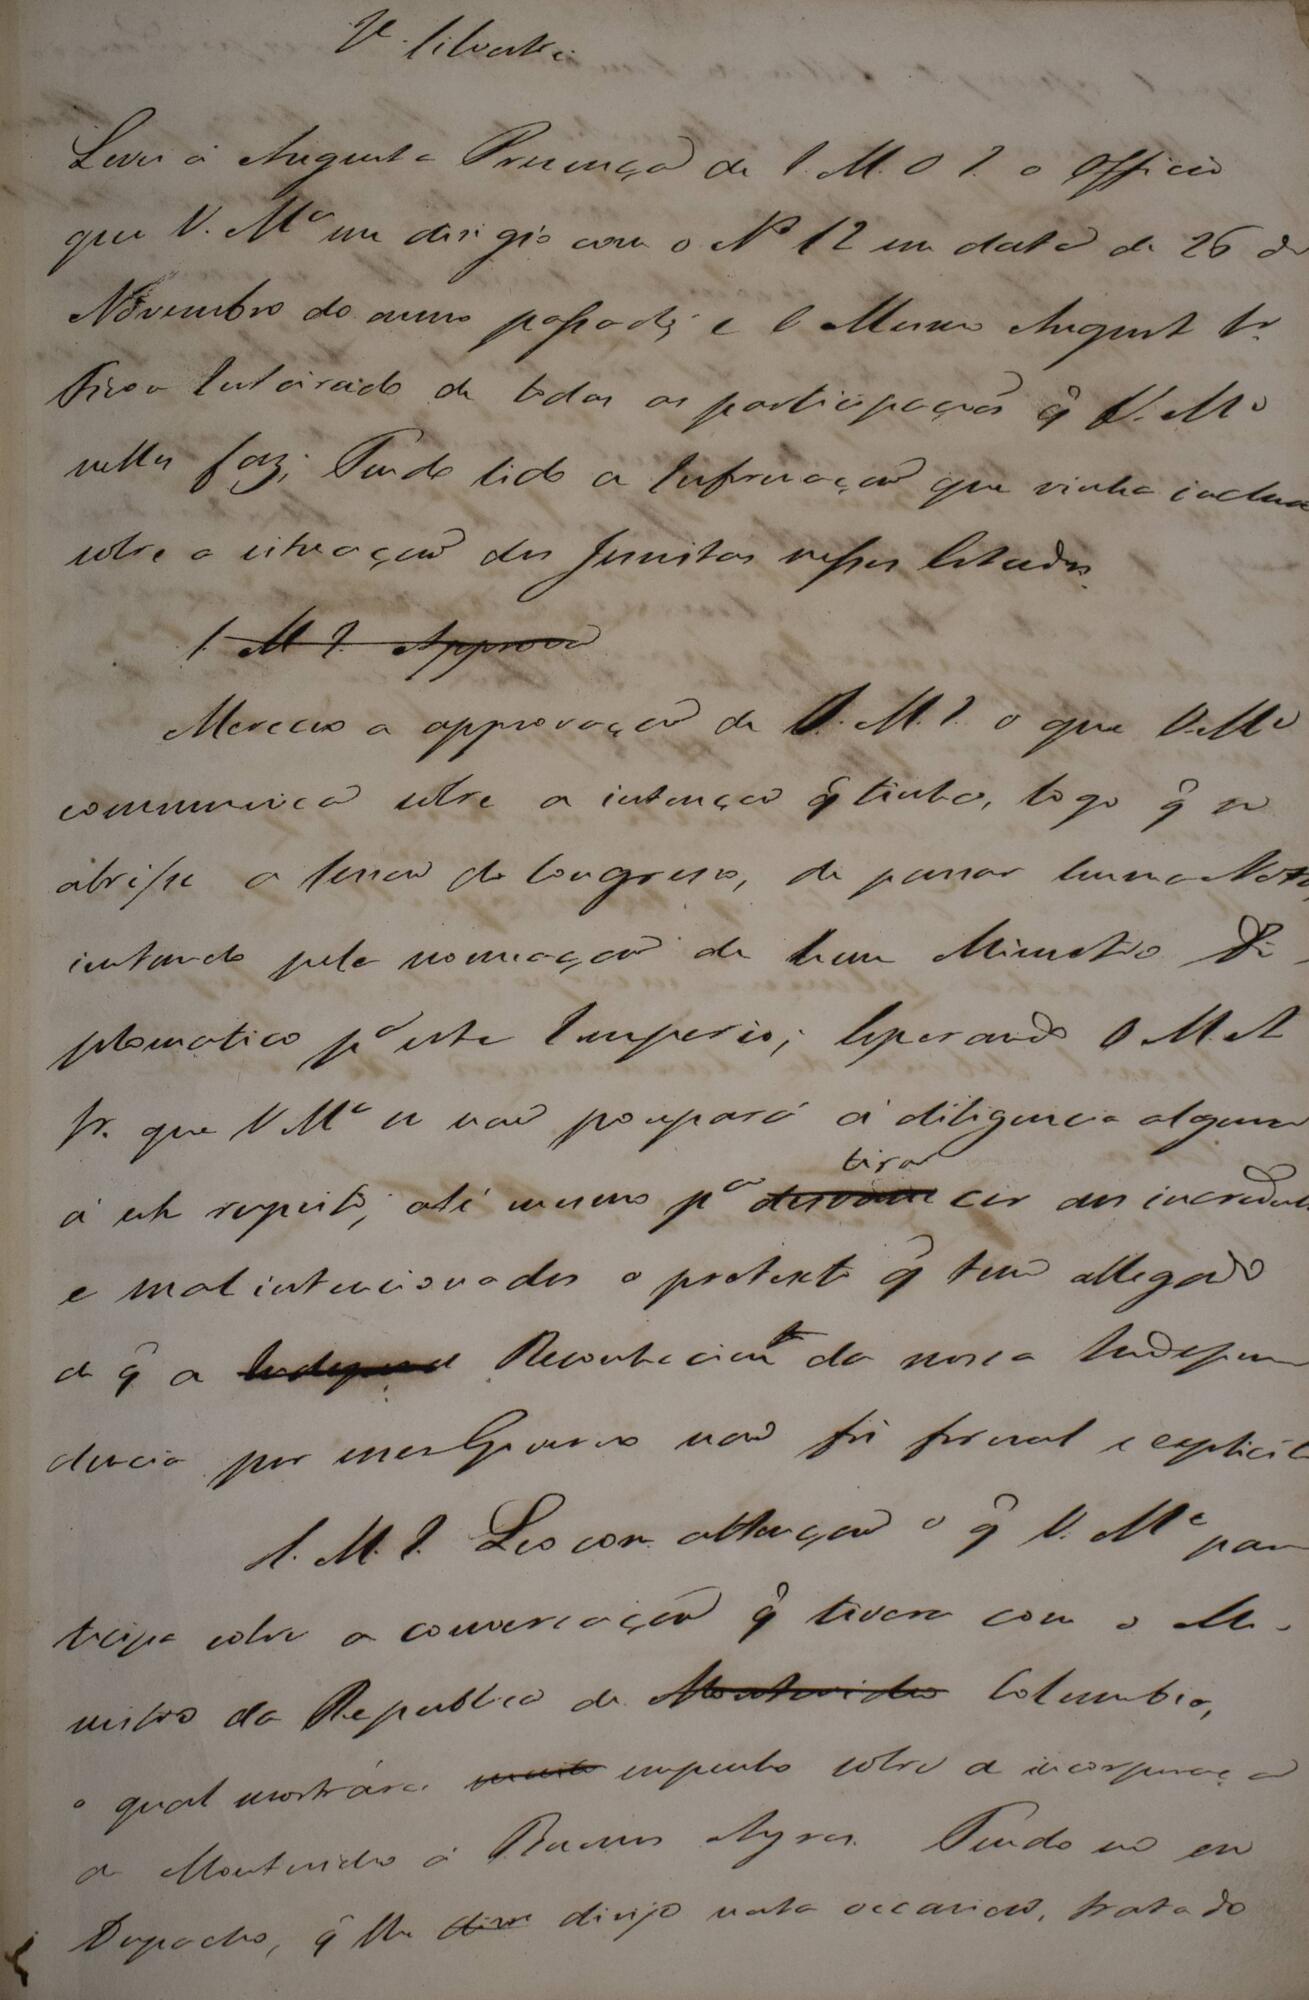 Sr. Silvestre
Levei á Augusta Presença de S. M. O I. o Officio
que V. Mce me dirigio com o No 12 em data de 26 de
Novembro do anno passado, e O Mesmo Augusto Sr.
Ficou Inteirado de todas as participações q̂ V. Mce
nelle faz; Tendo lido a Informação que vinha inclusa
sobre a situação dos Jesuitas nesses Estados.
S. M. I. Approva
Mereceo a approvação de S. M. I. o que V. Mce
communica sobre a intenção q̂ tinha, logo q̂ se
abrisse a Sessão do Congresso, de passar huma Nota,
instando pela nomeação de hum Ministro Di-
plomatico pa este Imperio; Esperando O M. A.
Sr. que V Mce se não poupará á diligencia alguma
á este respeito, até mesmo pa tirar aos incredulos
e mal intencionados o pretexto q̂ tem allegado
de q̂ a Reconhecimto da nossa Indepen
dencia por esse Governo não foi formal e explicito
S. M. I. Leo com attenção o q̂ V. Mce par
ticipa sobre a conversação q̂ tivera com o Mi-
nistro da Republica de Montevideo Columbia,
o qual mostrára muito empenho sobre a incorporação
de Montevideo á Buenos Ayres. Tendo no eu
Despacho, q̂ lhe dirijo nesta occasião, tratado